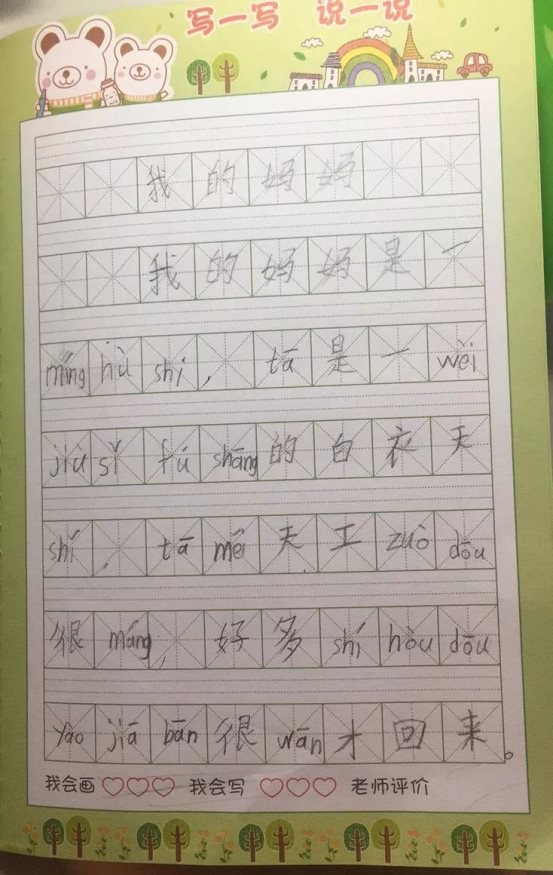 写一写 说一说
我的妈妈
我的妈妈是一
míng hù shi，tā是一wèi
jiù sǐ fú shāng的白衣天
shí，tā měi天工zuò dōu
很máng，好多shí hòu dōu
yào jiā bān很wǎn才回来。
我会画 我会写 老师评价